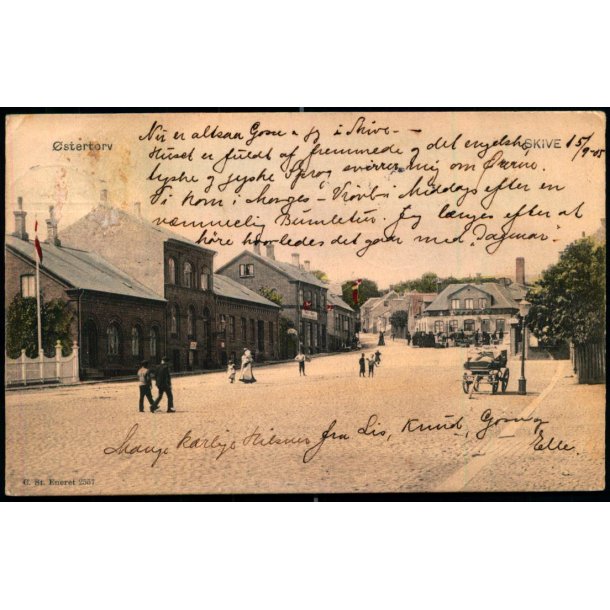 Østertorv
SKIVE 15/9-05
Nu er altsaa Gosse og jeg i Skive -
Huset er fuldt af fremmede og det engelske
tyske og jyske Sprog svirrer mig om Ørerne.
Vi kom i Morges - Middags efter en
væmmelig Bumletur. Jeg længes efter at
höre hvorledes det gaar med "Dagmar"
Mange kærlige Hilsner fra Lis, Knud, Gosse og
Elle.
C. St. Eneret 2557